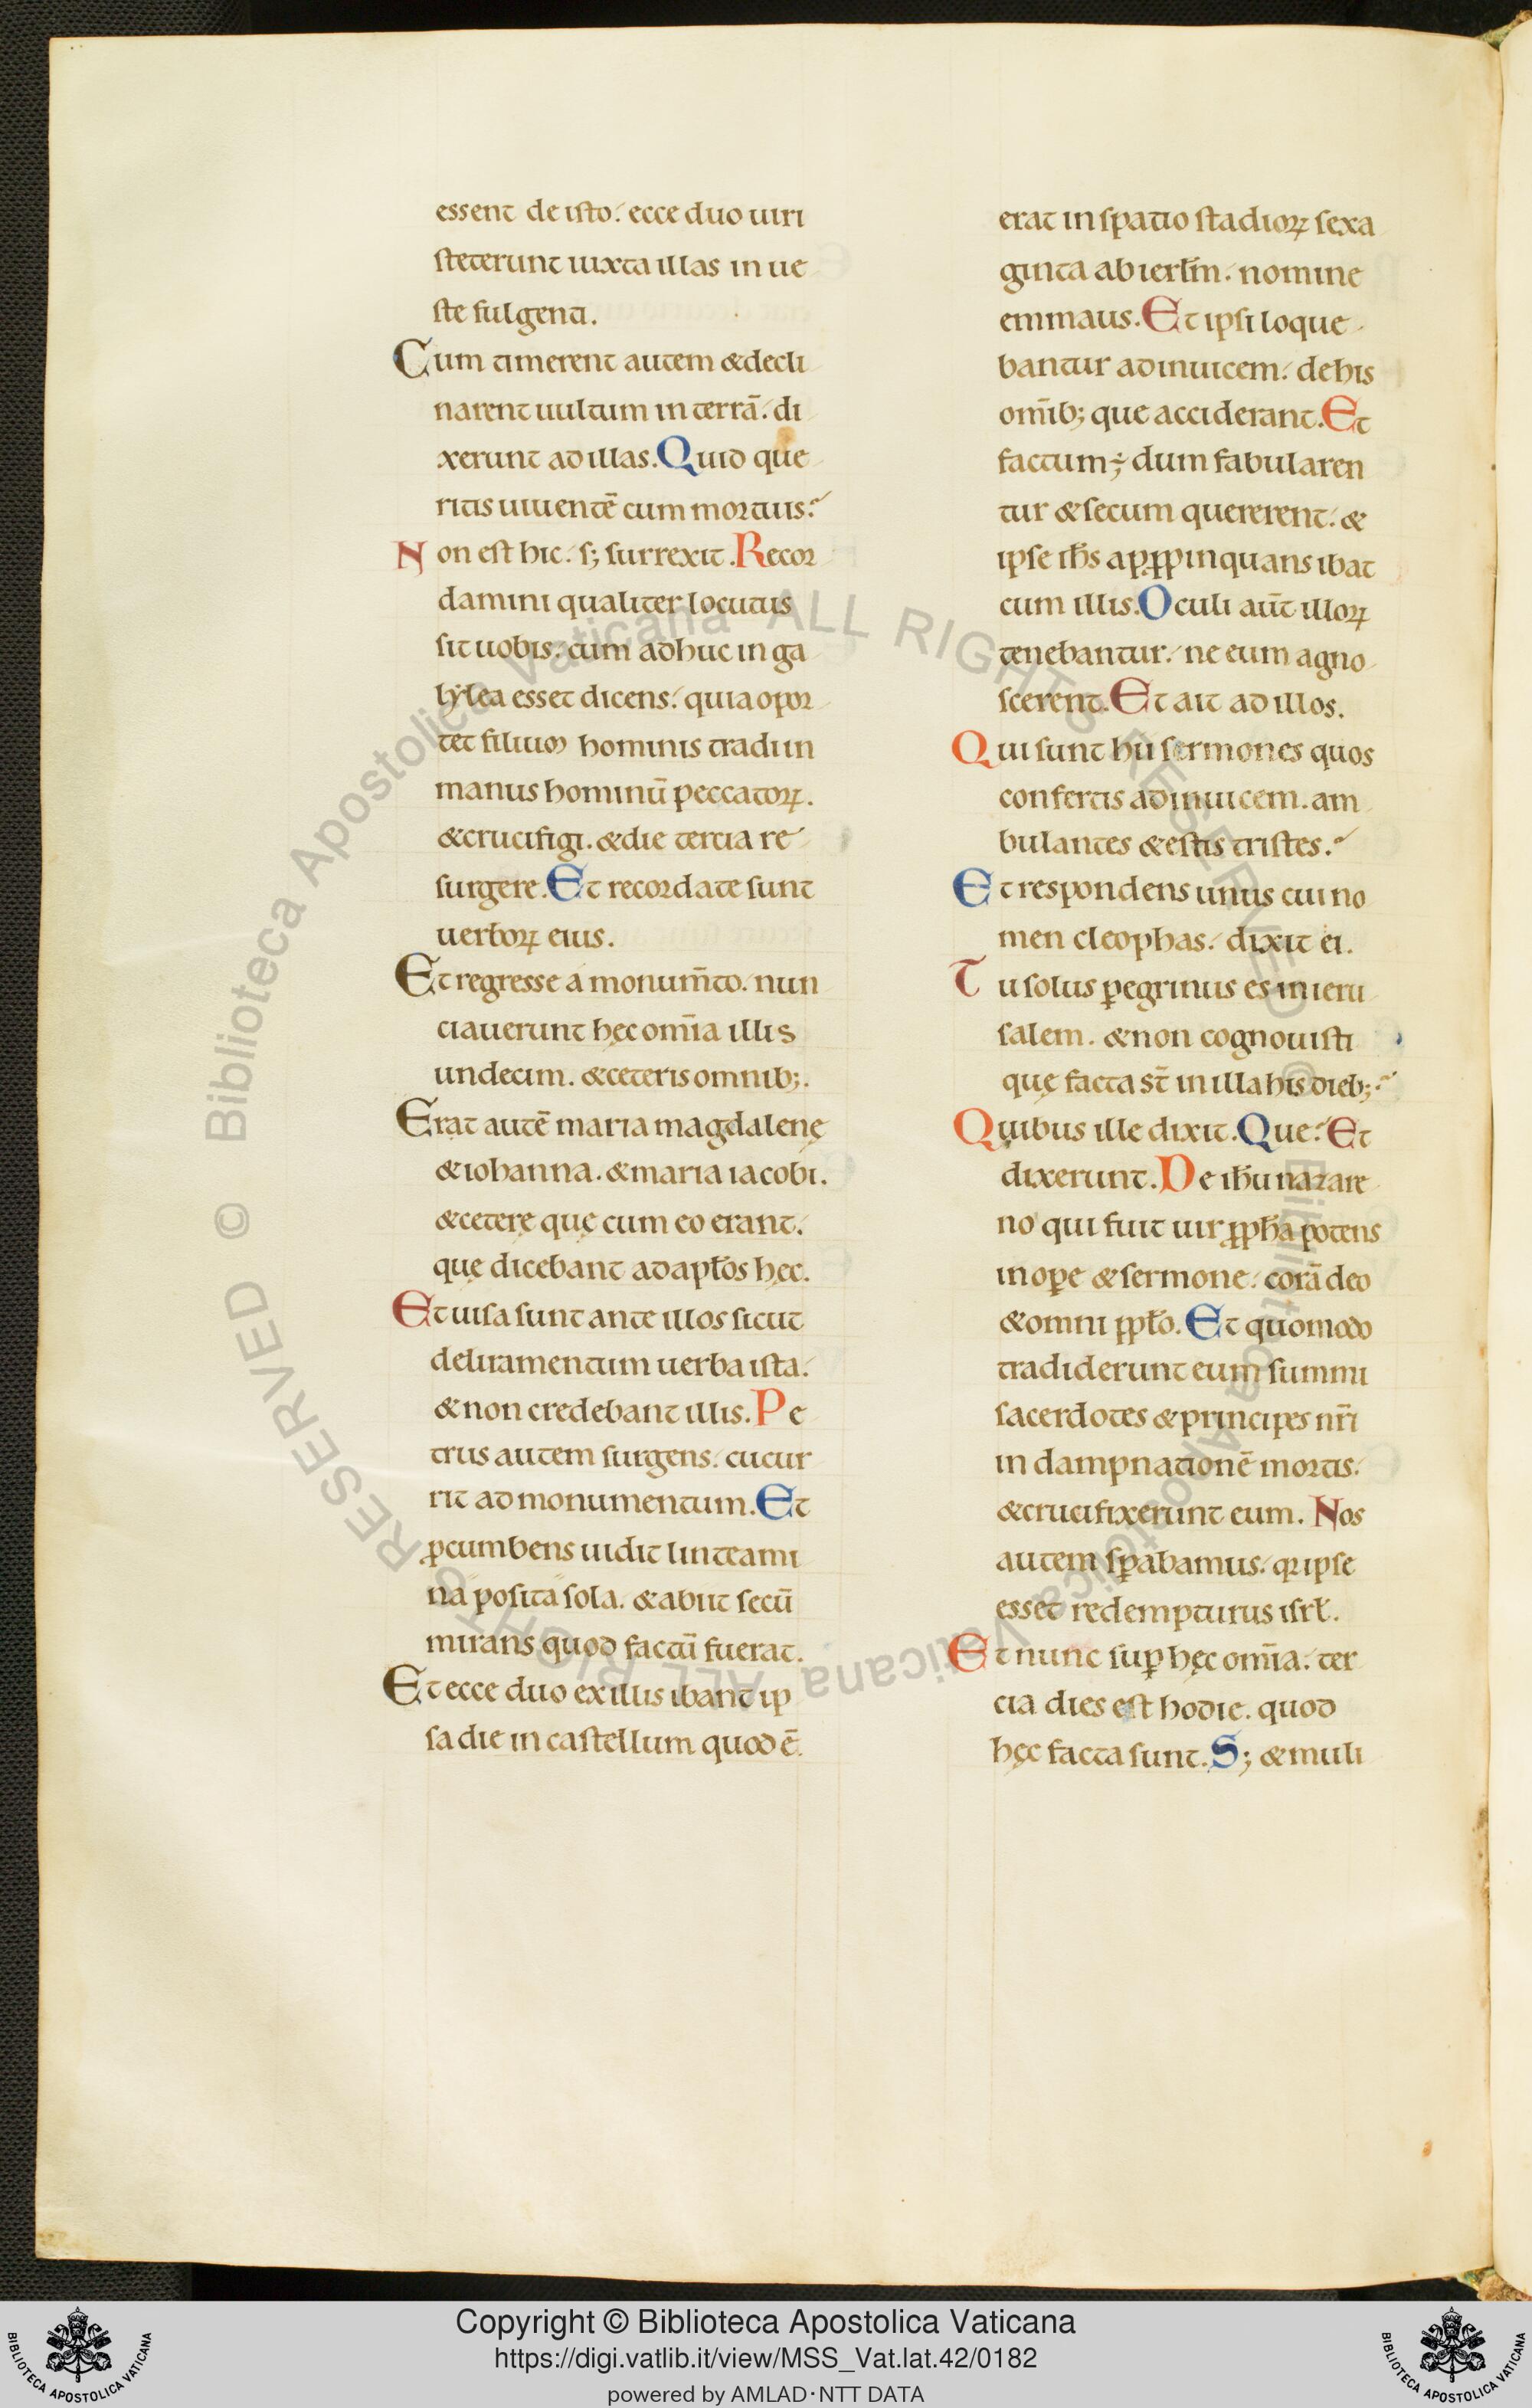 essent de isto. ecce duo uiri
steterunt iuxta illas in ue
ste fulgenti.
Cum timerent autem & decli
narent uultum in terrā. di
xerunt ad illas. Quid que
ritis uiuentē cum mortuis?
Non est hic. s; surrexit. Recor
damini qualiter locutus
sit uobis. cum adhuc in ga
lylea esset dicens. quia opor
tet filium hominis tradi in
manus hominū peccatoꝝ.
& crucifigi. & die tercia re
surgere. Et recordate sunt
uerboꝝ eius.
Et regresse a monum̄to. nun
ciauerunt hęc om̄ia illis
undecim. & ceteris omnib;.
Erat autē maria magdalenę
& iohanna. & maria iacobi.
& cetere quę cum eo erant.
quę dicebant ad apłos hęc.
Et uisa sunt ante illos sicut
deliramentum uerba ista.
& non credebant illis. Pe
trus autem surgens. cucur
rit ad monumentum. Et
ꝓcumbens uidit linteami
na posita sola. & abiit secū
mirans quod factū fuerat.
Et ecce duo ex illis ibant ip
sa die in castellum quod ē.
erat in spatio stadioꝝ sexa
ginta ab ierłm. nomine
emmaus. Et ipsi loque
bantur ad inuicem. de his
om̄ib; que acciderant. Et
factum÷; dum fabularen
tur & secum quererent. &
ipse ih̄s apꝓpinquans ibat
cum illis. Oculi aūt illoꝝ
tenebantur. ne eum agno
scerent. Et ait ad illos.
Qui sunt hii sermones quos
confertis ad inuicem. am
bulantes & estis tristes.?
Et respondens unus cui no
men cleophas. dixit ei.
Tu solus ꝑegrinus es in ieru
salem. & non cognouisti
quę facta st̄ in illa his dieb;.?
Quibus ille dixit. Que? Et
dixerunt. De ih̄u nazare
no qui fuit uir ꝓph̄a potens
in oꝑe & sermone. corā deo
& omni ppło. Et quomodo
tradiderunt eum summi
sacerdotes & principes nr̄i
in dampnationē mortis.
& crucifixerunt eum. Nos
autem sꝑabamus. qꝛ ipse
esset redempturus isrł.
Et nunc suꝑ hęc om̄ia. ter
cia dies est hodie. quod
hęc facta sunt. S; & muli
Biblioteca Apostolica Vaticana ALL RIGHTS RESERVED © Biblioteca Apostolica Vaticana ALL RIGHTS RESERVED ©
Copyright © Biblioteca Apostolica Vaticana
https://digi.vatlib.it/view/MSS_Vat.lat.42/0182
powered by AMLAD·NTT DATA
BIBLIOTECA APOSTOLICA VATICANA
BIBLIOTECA APOSTOLICA VATICANA